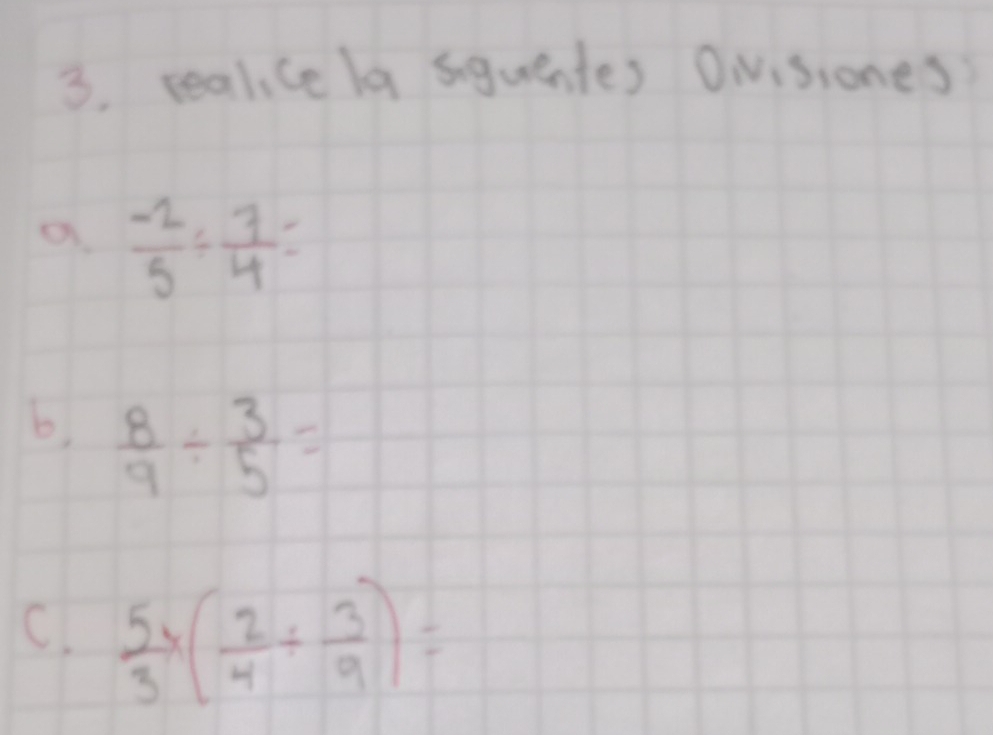 3. realice la siguentes Divisiones:
a. -2/5 ÷ 7/4 =
b. 8/9 ÷ 3/5 =
c. 5/3 x (2/4 ÷ 3/9) =